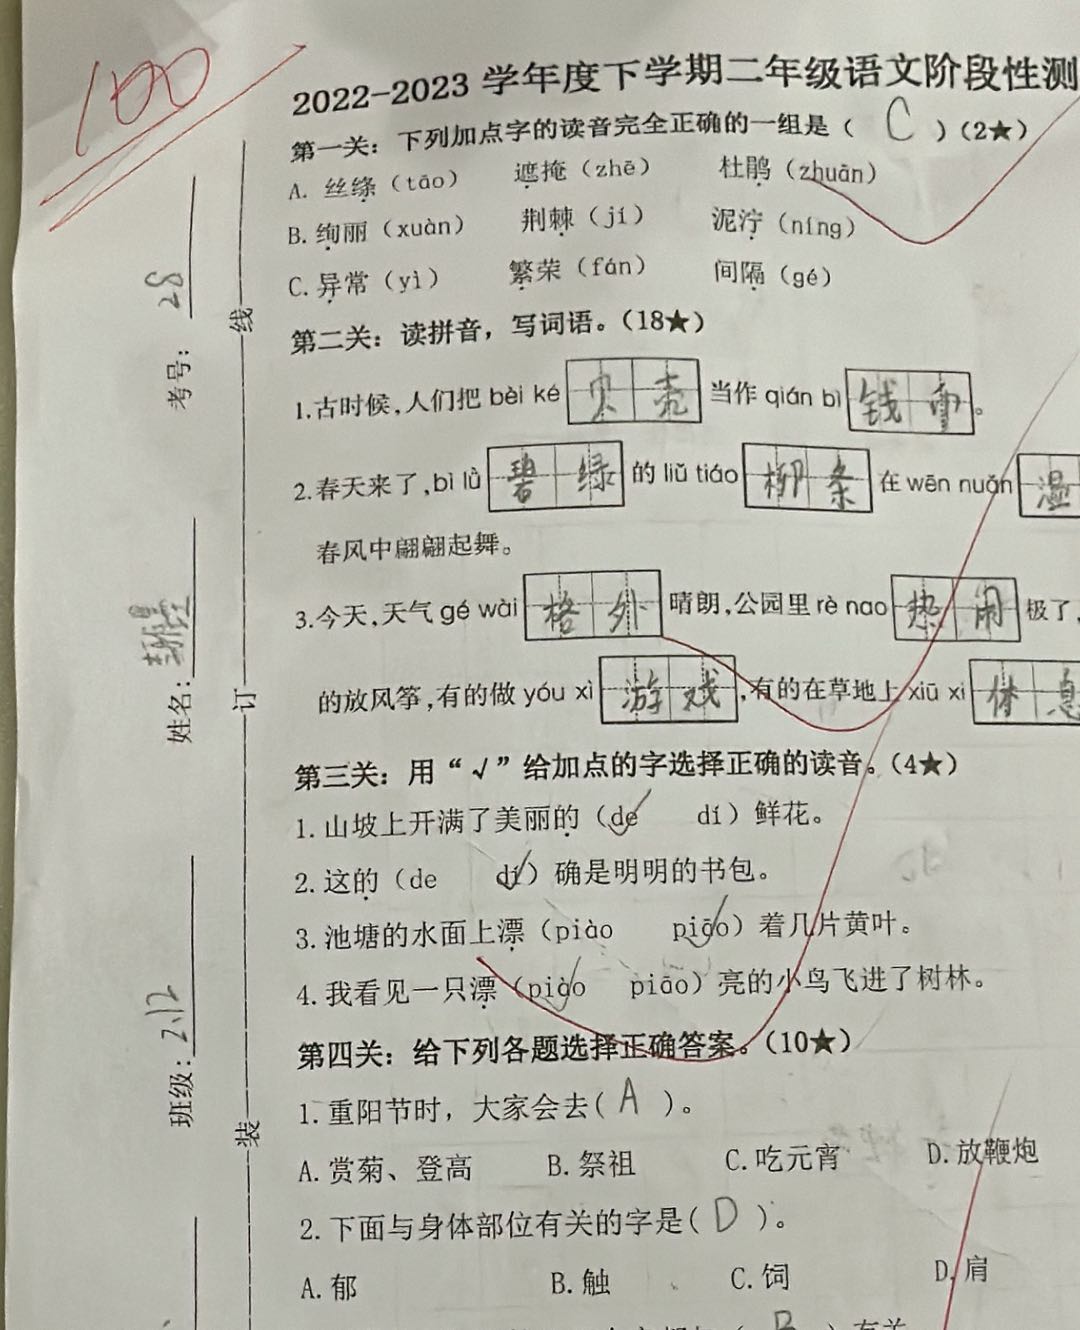 100
2022-2023学年度下学期二年级语文阶段性测
第一关：下列加点字的读音完全正确的一组是（ C ）（2★）
A. 丝绦（tāo） 遮掩（zhē） 杜鹃（zhuān）
B. 绚丽（xuàn） 荆棘（jí） 泥泞（níng）
C. 异常（yì） 繁荣（fán） 间隔（gé）
第二关：读拼音，写词语。（18★）
1.古时候,人们把 bèi ké 贝壳 当作 qián bì 钱币。
2.春天来了,bì lǜ 碧绿 的 liǔ tiáo 柳条 在 wēn nuǎn 温
春风中翩翩起舞。
3.今天,天气 gé wài 格外 晴朗,公园里 rè nao 热闹 极了,
的放风筝,有的做 yóu xì 游戏,有的在草地上 xiū xi 休息
第三关：用“√”给加点的字选择正确的读音。（4★）
1. 山坡上开满了美丽的（de√ dí）鲜花。
2. 这的（de dí√）确是明明的书包。
3. 池塘的水面上漂（piào piāo√）着几片黄叶。
4. 我看见一只漂（piào√ piāo）亮的小鸟飞进了树林。
第四关：给下列各题选择正确答案。（10★）
1. 重阳节时，大家会去( A )。
A. 赏菊、登高 B. 祭祖 C. 吃元宵 D. 放鞭炮
2. 下面与身体部位有关的字是( D )。
A. 郁 B. 触 C. 饲 D. 肩
B
考号：28
姓名：
班级：2.12
线
订
装